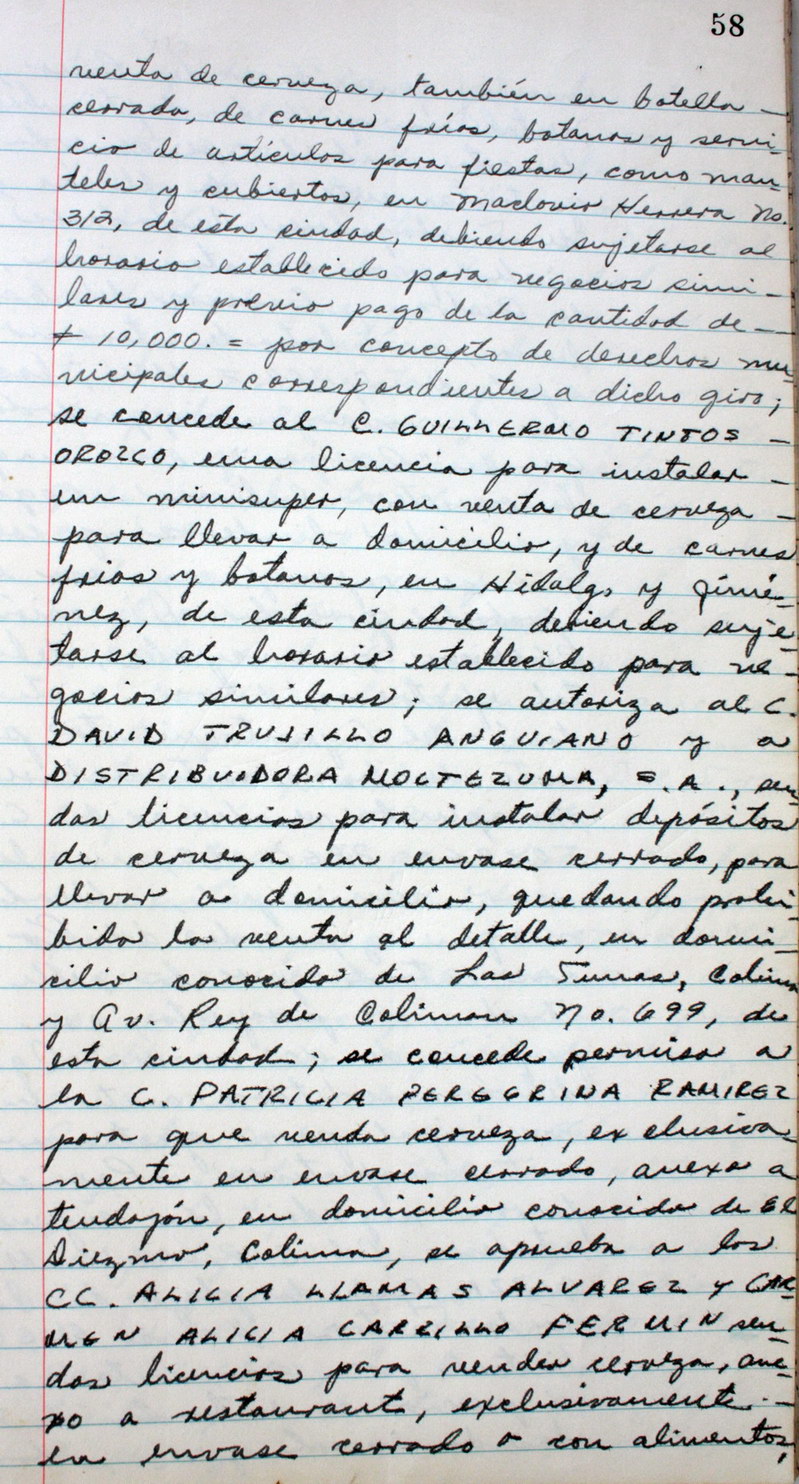 58
venta de cerveza, también en botella —
cerrada, de carnes frías, botanas y servi-
cio de artículos para fiestas, como man-
teles y cubiertos, en Maclovio Herrera No.
312, de esta ciudad, debiendo sujetarse al
horario establecido para negocios simi-
lares y previo pago de la cantidad de —
$ 10,000.= por concepto de derechos mu-
nicipales correspondientes a dicho giro;
se concede al C. GUILLERMO TINTOS —
OROZCO, una licencia para instalar —
un minisuper, con venta de cerveza —
para llevar a domicilio, y de carnes
frias y botanas, en Hidalgo y Jimé-
nez, de esta ciudad, debiendo suje-
tarse al horario establecido para ne-
gocios similares; se autoriza al C.
DAVID TRUJILLO ANGUIANO y a
DISTRIBUIDORA MOCTEZUMA, S.A., sen-
das licencias para instalar depósitos
de cerveza en envase cerrado, para
llevar a domicilio, quedando prohi-
bida la venta al detalle, en domi-
cilio conocido de Las Tunas, Colima
y Av. Rey de Coliman No. 699, de
esta ciudad; se concede permiso a
la C. PATRICIA PEREGRINA RAMIREZ
para que venda cerveza, exclusiva-
mente en envase cerrado, anexo a
tendajón, en domicilio conocido de El
Diezmo, Colima, se aprueba a las
CC. ALICIA LLAMAS ALVAREZ y CAR-
MEN ALICIA CARRILLO FERMIN sen-
das licencias para vender cerveza, ane-
xo a restaurant, exclusivamente —
en envase cerrado o con alimentos,